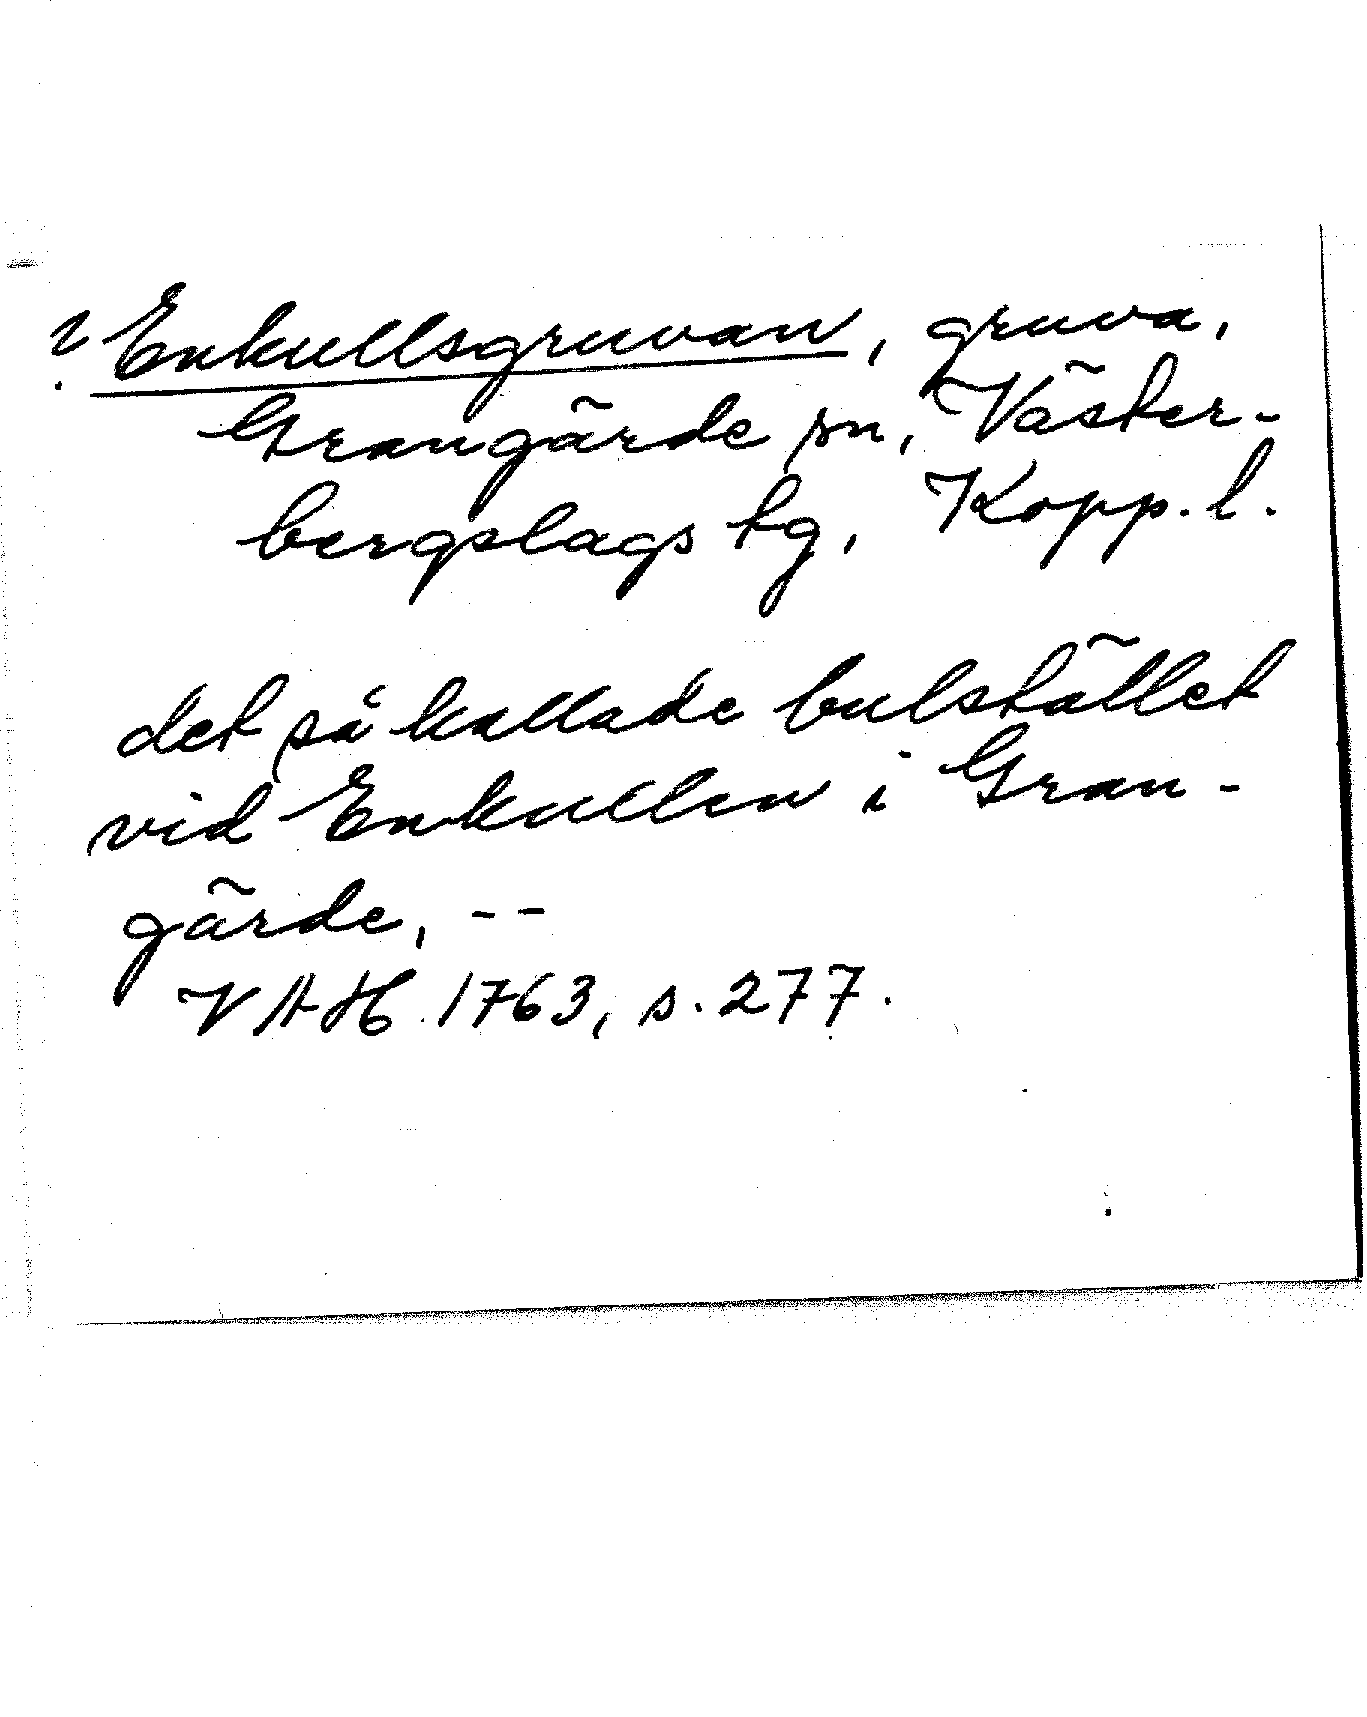 ? Enkullsgruvan, gruva,
Grangärde sn, Väster-
bergslags tg, Kopp. l.
det så kallade bulstället
vid Enkullen i Gran-
gärde, --
VAH 1763, s. 277.